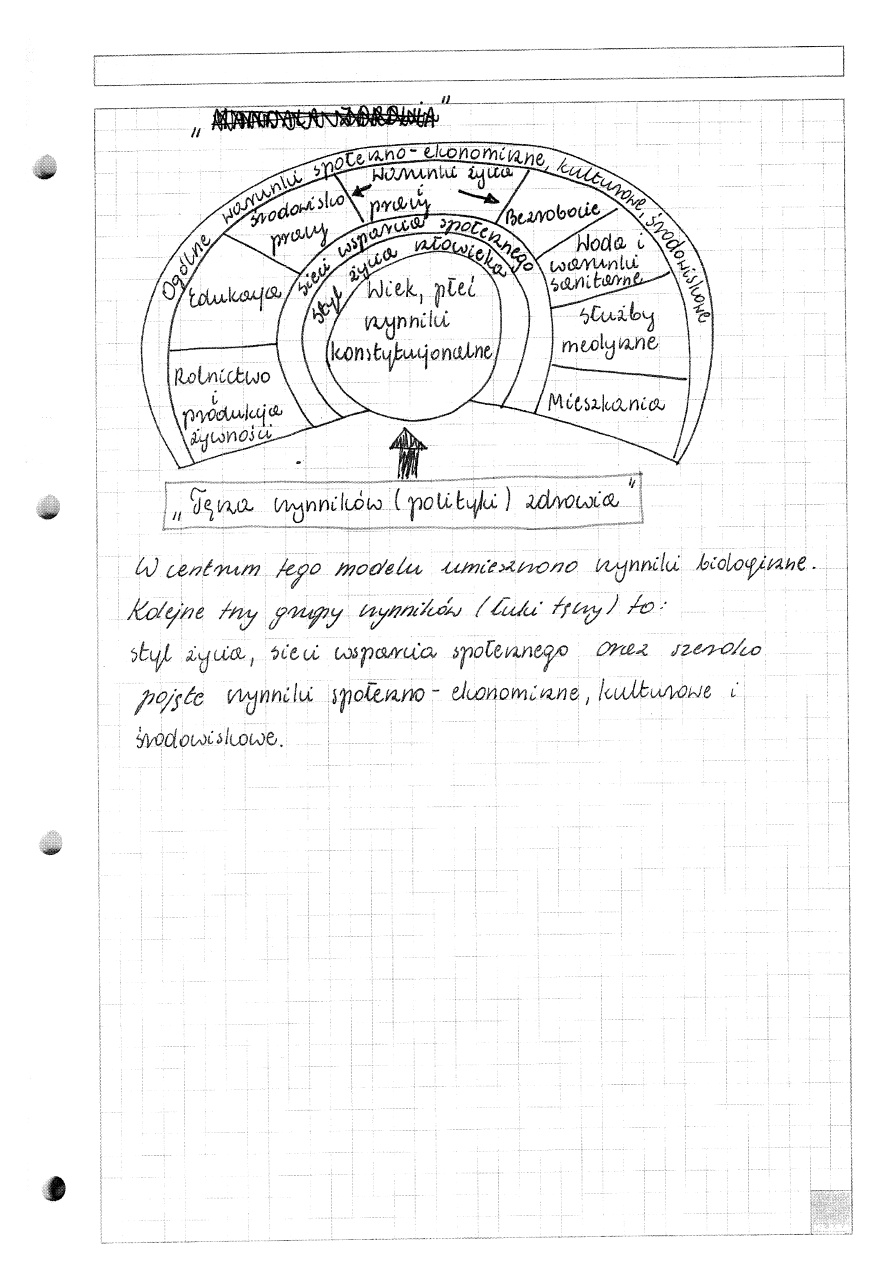 „MANDALA ZDROWIA"
Ogólne warunki społeczno-ekonomiczne, kulturowe, środowiskowe
Warunki życia
i
pracy
Środowisko
pracy
Bezrobocie
Edukacja
Woda i
warunki
sanitarne
Służby
medyczne
Rolnictwo
i
produkcja
żywności
Mieszkania
sieci wsparcia społecznego
styl życia człowieka
Wiek, płeć
czynniki
konstytucjonalne
„Tęcza czynników (polityki) zdrowia"
W centrum tego modelu umieszczono czynniki biologiczne.
Kolejne trzy grupy czynników (łuki tęczy) to:
styl życia, sieci wsparcia społecznego oraz szeroko
pojęte czynniki społeczno-ekonomiczne, kulturowe i
środowiskowe.